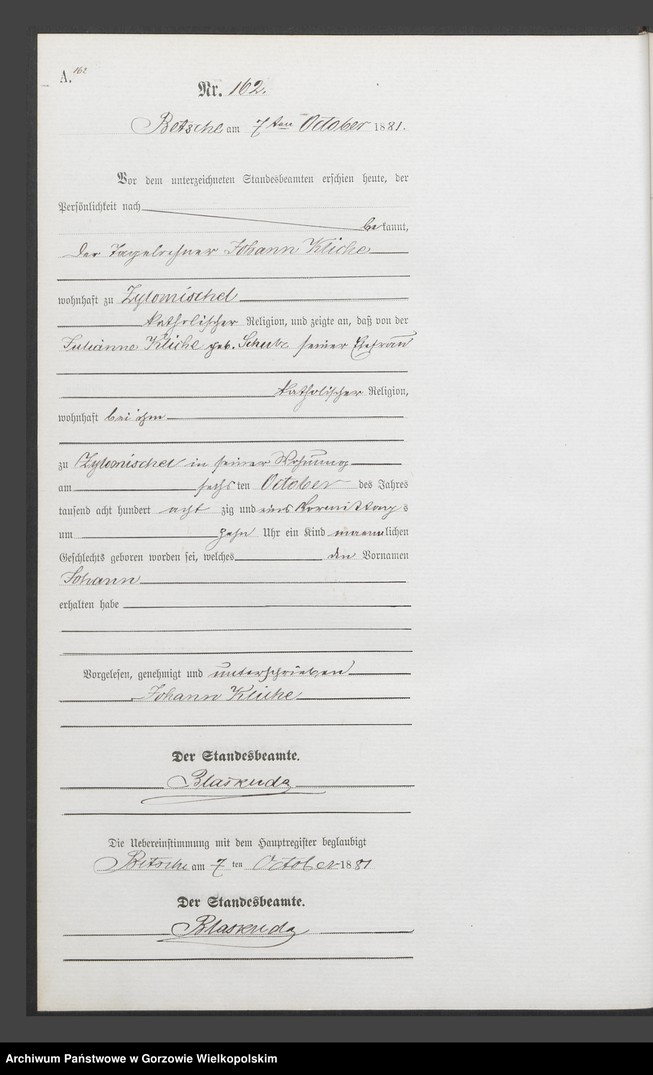 A. 162
Nr. 162.
Betsche am 7ten October 1881.
Vor dem unterzeichneten Standesbeamten erschien heute, der
Persönlichkeit nach
bekannt,
der Tagelöhner Johann Kliche
wohnhaft zu Zylomischel
katholischer Religion, und zeigte an, daß von der
Julianne Kliche geb. Schulz seiner Ehefrau
katholischer Religion,
wohnhaft bei ihm
zu Zylomischel in seiner Wohnung
am sechsten October des Jahres
tausend acht hundert acht zig und eins Vormittags
um zehn Uhr ein Kind maennlichen
Geschlechts geboren worden sei, welches den Vornamen
Johann
erhalten habe
Vorgelesen, genehmigt und unterschrieben
Johann Kliche
Der Standesbeamte.
Blaskuda
Die Uebereinstimmung mit dem Hauptregister beglaubigt
Betsche am 7ten October 1881
Der Standesbeamte.
Blaskuda
Archiwum Państwowe w Gorzowie Wielkopolskim